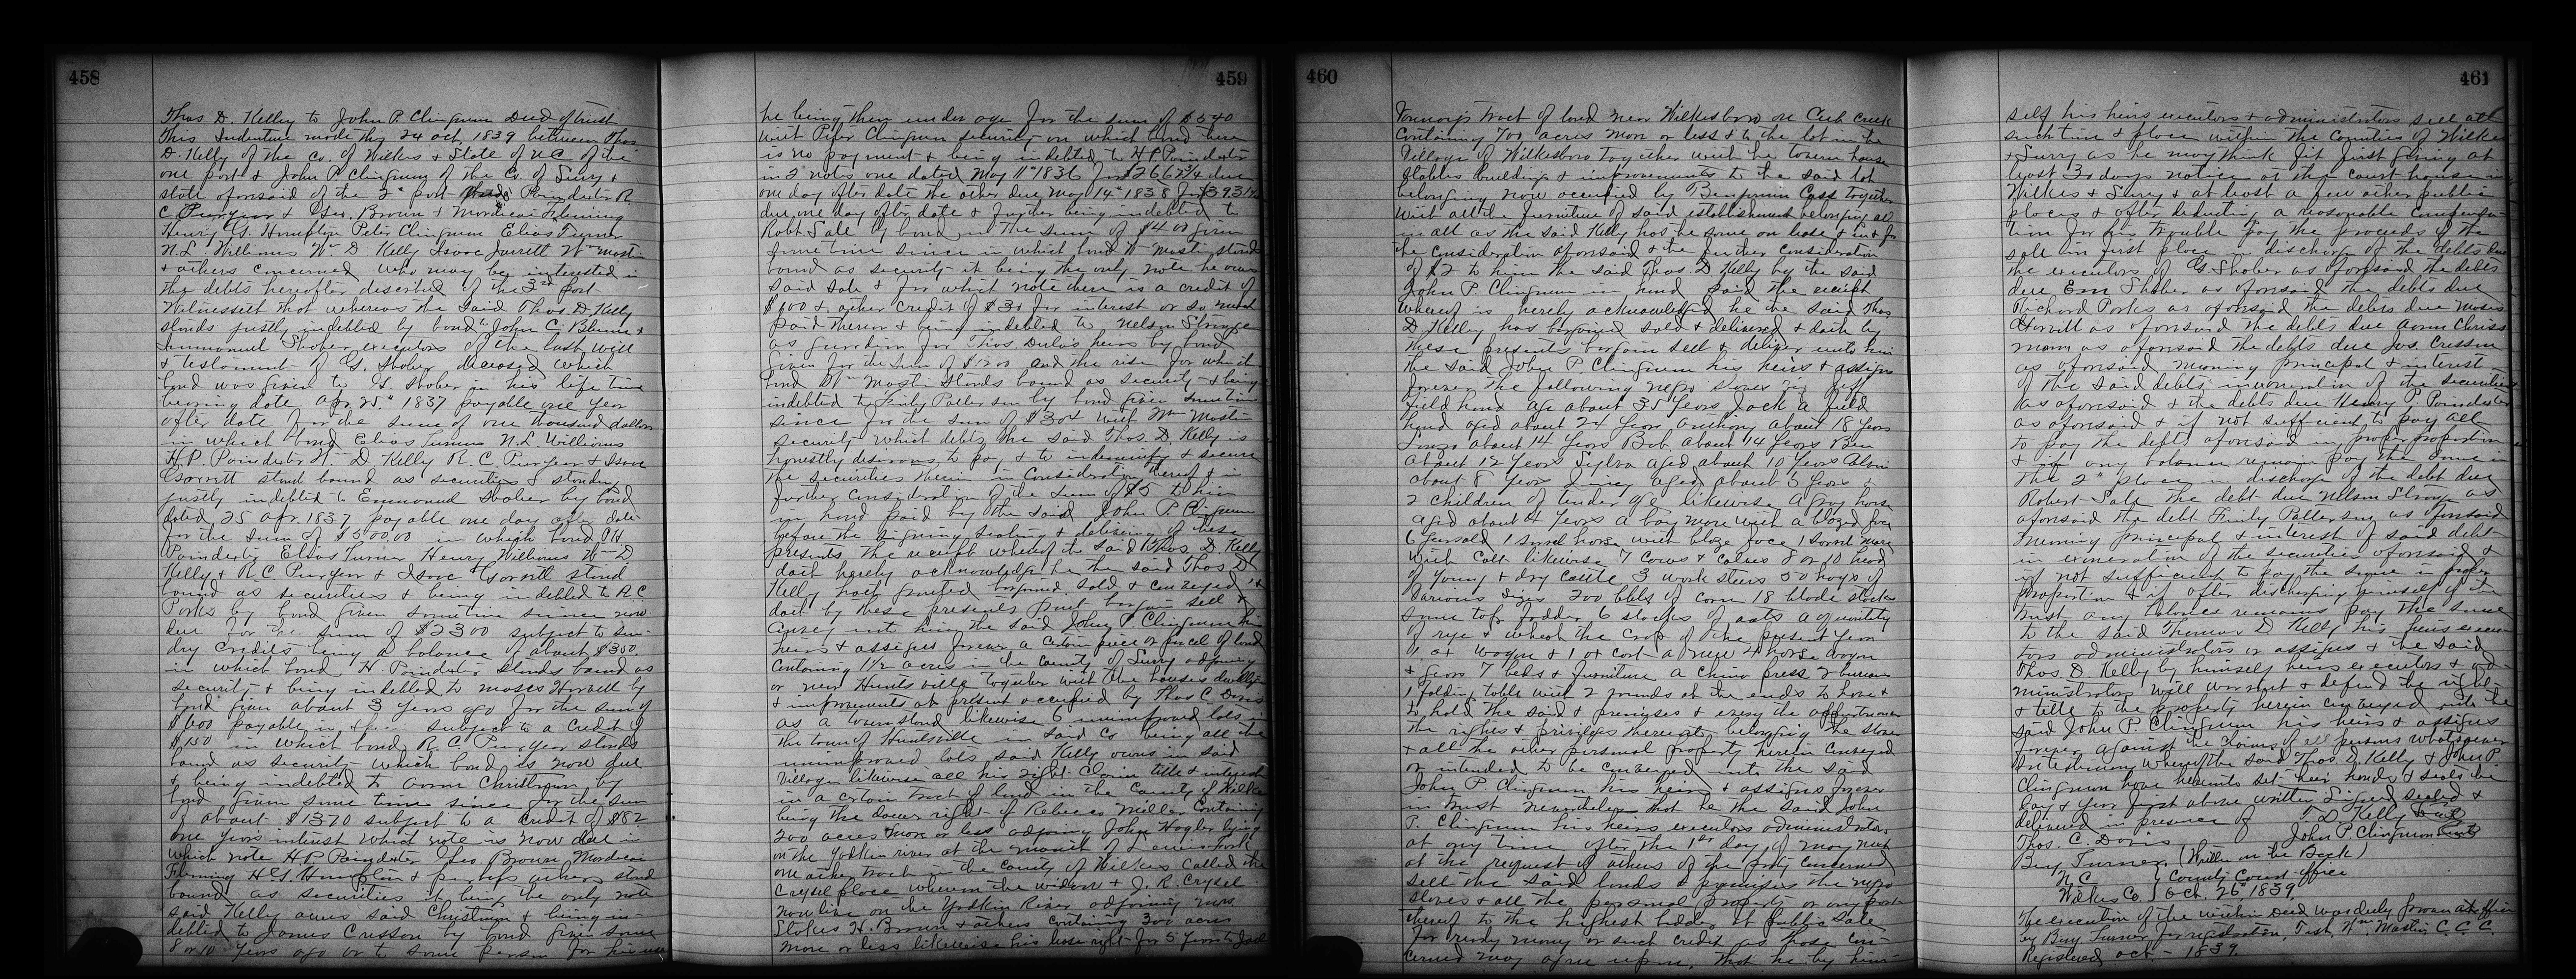 458
Thos D. Kelly to John P. Clingman Deed of trust
This Indenture made this 24 Oct. 1839 between Thos
D. Kelly of the Co. of Wilkes & State of N.C of the
one part & John P. Clingman of the Co. of Surry &
state aforesaid of the 2d part Poindexter R.
C. Puryear & Geo. Brown & Mordicai Fleming
Henry G. Hampton Peter Clingman Elias Turner
N. L. Williams Wm D Kelly Isaac Jarratt Wm Mastin
& others concerned who may be interested in
the debts hereafter described of the 3rd part
Witnesseth that whereas the said Thos. D. Kelly
stands justly indebted by bond to John C. Blume &
Emmanuel Shober executors of the last will
& testament of G. Shober deceased which
bond was given to G. Shober in his life time
bearing date Apr. 25th 1837 payable one year
after date for the sum of one thousand dollars
in which bond Elias Turner N. L. Williams
H. P. Poindexter Wm D Kelly R. C. Puryear & Isaac
Garrett stand bound as securities & standing
justly indebted to Emmanuel Shober by bond
dated 25 Apr. 1837 payable one day after date
for the sum of $500.00 in which bond
Poindexter Elias Turner Henry Williams Wm D
Kelly & R. C. Puryear & Isaac Garrett stand
bound as securities & being indebted to R. C.
Parks by bond given sometime since now
due for the sum of $2300 subject to sun-
dry credits being a balance of about $300.
in which bond H. Poindexter stands bound as
security & being indebted to Moses Harvell by
bond given about 3 years ago for the sum of
$600 payable in subject to a credit of
$150 in which bond R. C. Puryear stands
bound as security which bond is now due
& being indebted to Aaron Chrisman by
bond given some time since for the sum
of about $1370 subject to a credit of $82
one years interest which note is now due in
which note H. P. Poindexter Geo Brown Mordicai
Fleming H. G. Hampton & perhaps others stand
bound as securities it being the only note
said Kelly owes said Chrisman & being in-
debted to James Cresson by bond given some
8 or 10 years ago or to some person for his use
459
he being then under age for the sum of $540
with Peter Clingman security on which bond there
is no payment & being indebted to H P Poindexter
in 2 notes one dated May 11th 1836 for $266 due
one day after date the other due May 14th 1838 for $393
due one day after date & further being indebted to
Robt Sale by bond in the sum of $400 given
sometime since in which bond Wm Mastin stands
bound as security it being the only note he owes
said Sale & for which note there is a credit of
$100 & other credit of $30 for interest or so much
paid thereon & being indebted to Nelson Strange
as guardian for Thos. Dula's heirs by bond
given for the sum of $1200 and the rise for which
bond Wm Mastin stands bound as security & being
indebted to Finly Patterson by bond given sometime
since for the sum of $300 with Wm Mastin
security which debts the said Thos. D. Kelly is
honestly desirous to pay & to indemnify & secure
the securities therein in consideration thereof & in
further consideration of the sum of $5 to him
in hand paid by the said John P Clingman
before the signing sealing & delivering of these
presents the receipt whereof the said Thos. D. Kelly
doth hereby acknowledge he the said Thos D.
Kelly hath granted bargained sold & conveyed &
doth by these presents grant bargain sell &
convey unto him the said John P. Clingman his
heirs & assigns forever a certain piece or parcel of land
containing 1 1/2 acres in the County of Surry adjoining
or near Huntsville together with the houses dwelling
& improvements at present occupied by Thos C. Davis
as a tavern stand likewise 6 unimproved lots in
the town of Huntsville in said Co being all the
unimproved lots said Kelly owns in said
Village likewise all his right Claim title & interest
in a certain tract of land in the County of Wilkes
being the dower right of Rebecca Miller containing
200 acres more or less adjoining John Hagler lying
on the Yadkin river at the mouth of Lewis fork
one other tract in the County of Wilkes called the
Crysel place whereon the widow & J. R. Crysel
now live on the Yadkin River adjoining
Stokes H. Brown & others containing 300 acres
more or less likewise his lease right for 5 years to
460
tract of land near Wilkesboro on Cub creek
containing 700 acres more or less & to the lot in the
Village of Wilkesboro together with the tavern house
stables buildings & improvements to the said lot
belonging now occupied by Benjamin Cass together
with all the furniture of said establishment belonging all
in all as the said Kelly has the same on lease & in & for
the consideration aforesaid & the further consideration
of $2 to him the said Thos. D Kelly by the said
John P. Clingman in hand paid the receipt
whereof is hereby acknowledged he the said Thos
D. Kelley has bargained sold & delivered & doth by
these presents bargain sell & deliver unto him
the said John P Clingman his heirs & assigns
forever the following negro slaves viz Jeff
field hand age about 35 years Jack a field
hand aged about 24 years Anthony about 18 years
about 14 years Bob about 14 years Ben
about 12 years Sylva aged about 10 years
about 8 years aged about 5 years &
2 children of tender age likewise a gray horse
aged about 4 years a bay mare with a blazed face
6 years old 1 sorrel horse with blaze face 1 sorrel mare
with colt likewise 7 cows & calves 8 or 10 head
of young & dry cattle 3 work steers 50 hogs of
various sizes 200 bbls of corn 18 blade stacks
some tops fodder 6 stacks of oats a quantity
of rye & wheat the crop of the present year
1 ox wagon & 1 ox cart a new 4 horse wagon
& gears 7 beds & furniture a China press 2 bureaus
1 folding table with 2 rounds at the ends to have &
to hold the said & premises & every the appurtenances
the rights & privileges thereunto belonging the slaves
& all the other personal property herein conveyed
or intended to be conveyed unto the said
John P Clingman his heirs & assigns forever
in trust nevertheless that he the said John
P. Clingman his heirs executors administrators
at any time after the 1st day of May next
at the request of others of the party concerned
sell the said lands & premises the negro
slaves & all the personal property or any part
thereof to the highest bidder at public sale
for ready money or such credit as those con-
cerned may agree upon, that he by him-
461
self his heirs executors & administrators sell at
such time & place within the Counties of Wilkes
& Surry as he may think fit first giving at
least 30 days notice at the court house in
Wilkes & Surry & at least a few other public
places & after deducting a reasonable compensa-
tion for his trouble pay the proceeds of the
sale in first place in discharge of the debts due
the executors of G. Shober as aforesaid the debts
due Em Shober as aforesaid the debts due
Richard Parks as aforesaid the debts due Moses
Harvell as aforesaid the debts due Aaron Chriss
mann as aforesaid the debts due Jas. Cresson
as aforesaid meaning principal & interest
of the said debts in exoneration of the securities
as aforesaid & the debts due Henry P. Poindexter
as aforesaid & if not sufficient to pay all
to pay the debts aforesaid in proper proportion
& if any balance remain pay the same in
the 2d place in discharge of the debt due
Robert Sale the debt due Nelson Strange as
aforesaid the debt Finly Patterson as aforesaid
meaning principal & interest of said debt
in exoneration of the securities aforesaid &
if not sufficient to pay the same in proper
proportion & if after discharging himself of the
trust any balance remains pay the same
to the said Thomas D Kelly his heirs execu
tors administrators or assigns & the said
Thos. D. Kelly by himself heirs executors & ad-
ministrators will warrant & defend the right
& title to the property herein conveyed unto the
said John P. Clingman his heirs & assigns
forever against the claims of all persons whatsoever
In testimony whereof the said Thos. D. Kelly & John P.
Clingman have hereunto set their hands & seals the
day & year first above written Signed sealed &
delivered in presence of T. D. Kelly Seal
Thos. C. Davis John P Clingman Seal
Benj Turner (Written on the Back)
N. C. } County Court office
Wilkes Co. } Oct. 26th 1839.
The execution of the within Deed was duly proven at office
by Benj Turner for registration. Test. Wm Mastin C. C. C.
Registered Oct. - 1839.